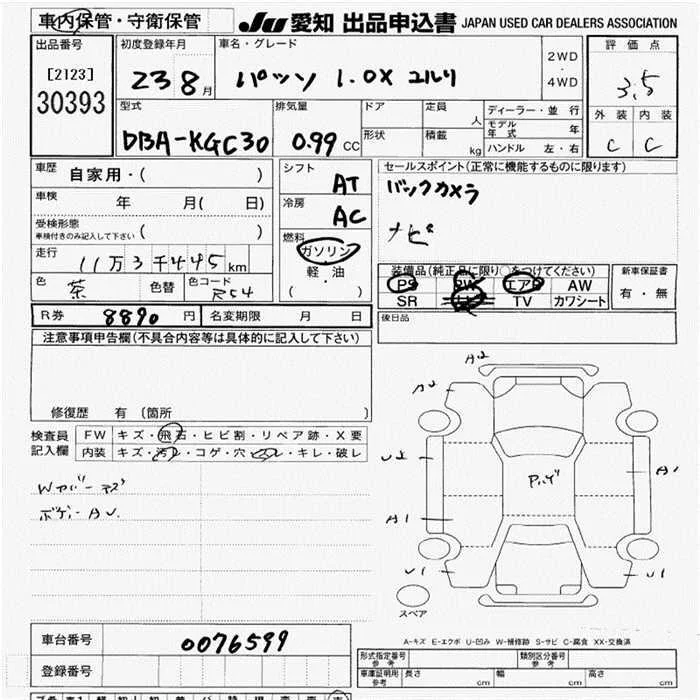 車内保管・守衛保管
JU 愛知 出品申込書 JAPAN USED CAR DEALERS ASSOCIATION
出品番号
[2123]
30393
初度登録年月
23 8月
車名・グレード
パッソ 1.0X
2WD
・
4WD
評価点
3.5
外装 内装
C C
型式
DBA-KGC30
排気量
0.99 CC
ドア
形状
定員
人
積載
kg
ディーラー・並行
モデル年式 年
ハンドル 左・右
車歴
自家用・( )
車検
年 月( 日)
受検形態
車検付きのみ記入して下さい ( )
走行
11万3千445km
色
茶
色替
色コード
R54
シフト
AT
冷房
AC
燃料
ガソリン
・
軽油
( )
セールスポイント(正常に機能するものに限ります)
バックカメラ
ナビ
装備品(純正品に限り○をつけてください)
PS PW エアB AW
SR TV カワシート
新車保証書
有・無
後日品
R券 8890円 名変期限 月 日
注意事項申告欄(不具合内容等は具体的に記入して下さい)
修復歴 有(箇所 )
検査員記入欄
FW キズ・飛石・ヒビ割・リペア跡・X要
内装 キズ・汚レ・コゲ・穴・ビレ・キレ・破レ
ボデーAU.
A2
A2
A1
A1
U1
U1
スペア
A-キズ E-エクボ U-凹み W-補修跡 S-サビ C-腐食 XX-交換済
車台番号 0076599
登録番号
形式指定番号 参考
類別区分番号 参考
車庫証明用 参考 長さ cm 幅 cm 高さ cm